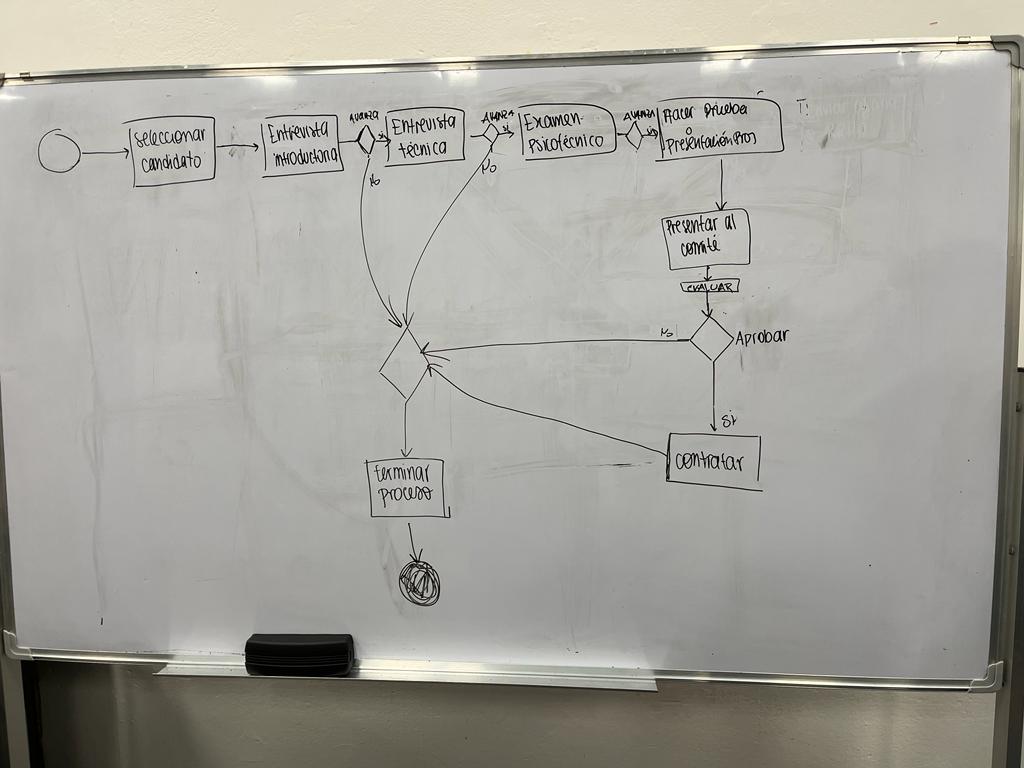 Seleccionar
candidato
Entrevista
introductoria
AVANZA
si
No
Entrevista
técnica
AVANZA
si
No
Examen
Psicotécnico
AVANZA
Hacer Prueba
o
Presentación
Presentar al
comité
EVALUAR
No
Aprobar
si
contratar
terminar
proceso